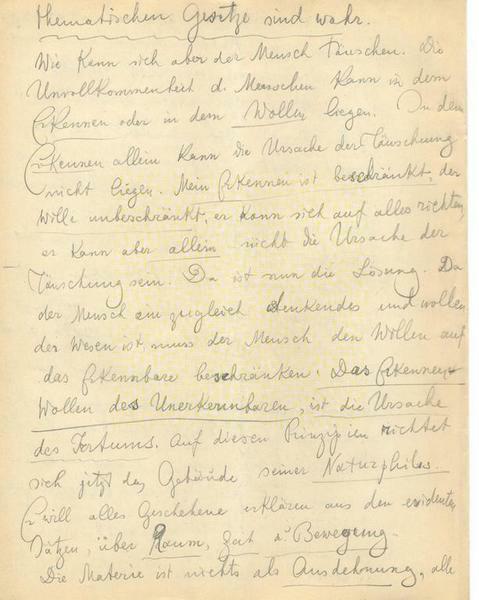 thematischen Gesetze sind wahr.
Wie kann sich aber der Mensch täuschen. Die
Unvollkommenheit d. Menschen kann in dem
Erkennen oder in dem Wollen liegen. In dem
Erkennen allein kann die Ursache der Täuschung
nicht liegen. Mein Erkennen ist beschränkt, der
Wille unbeschränkt, er kann sich auf alles richten,
er kann aber allein nicht die Ursache der
Täuschung sein. Da ist nun die Lösung. Da
der Mensch ein zugleich denkendes und wollen
des Wesen ist, muss der Mensch den Wollen auf
das Erkennbare beschränken. Das Erkennen
Wollen des Unerkennbaren, ist die Ursache
des Irrtums. Auf diesen Prinzipien richtet
sich jetzt das Gebäude seiner Naturphilos.
Er will alles Geschehene erklären aus den evidenten
Sätzen, über Raum, Zeit u. Bewegung.
Die Materie ist nichts als Ausdehnung, alle